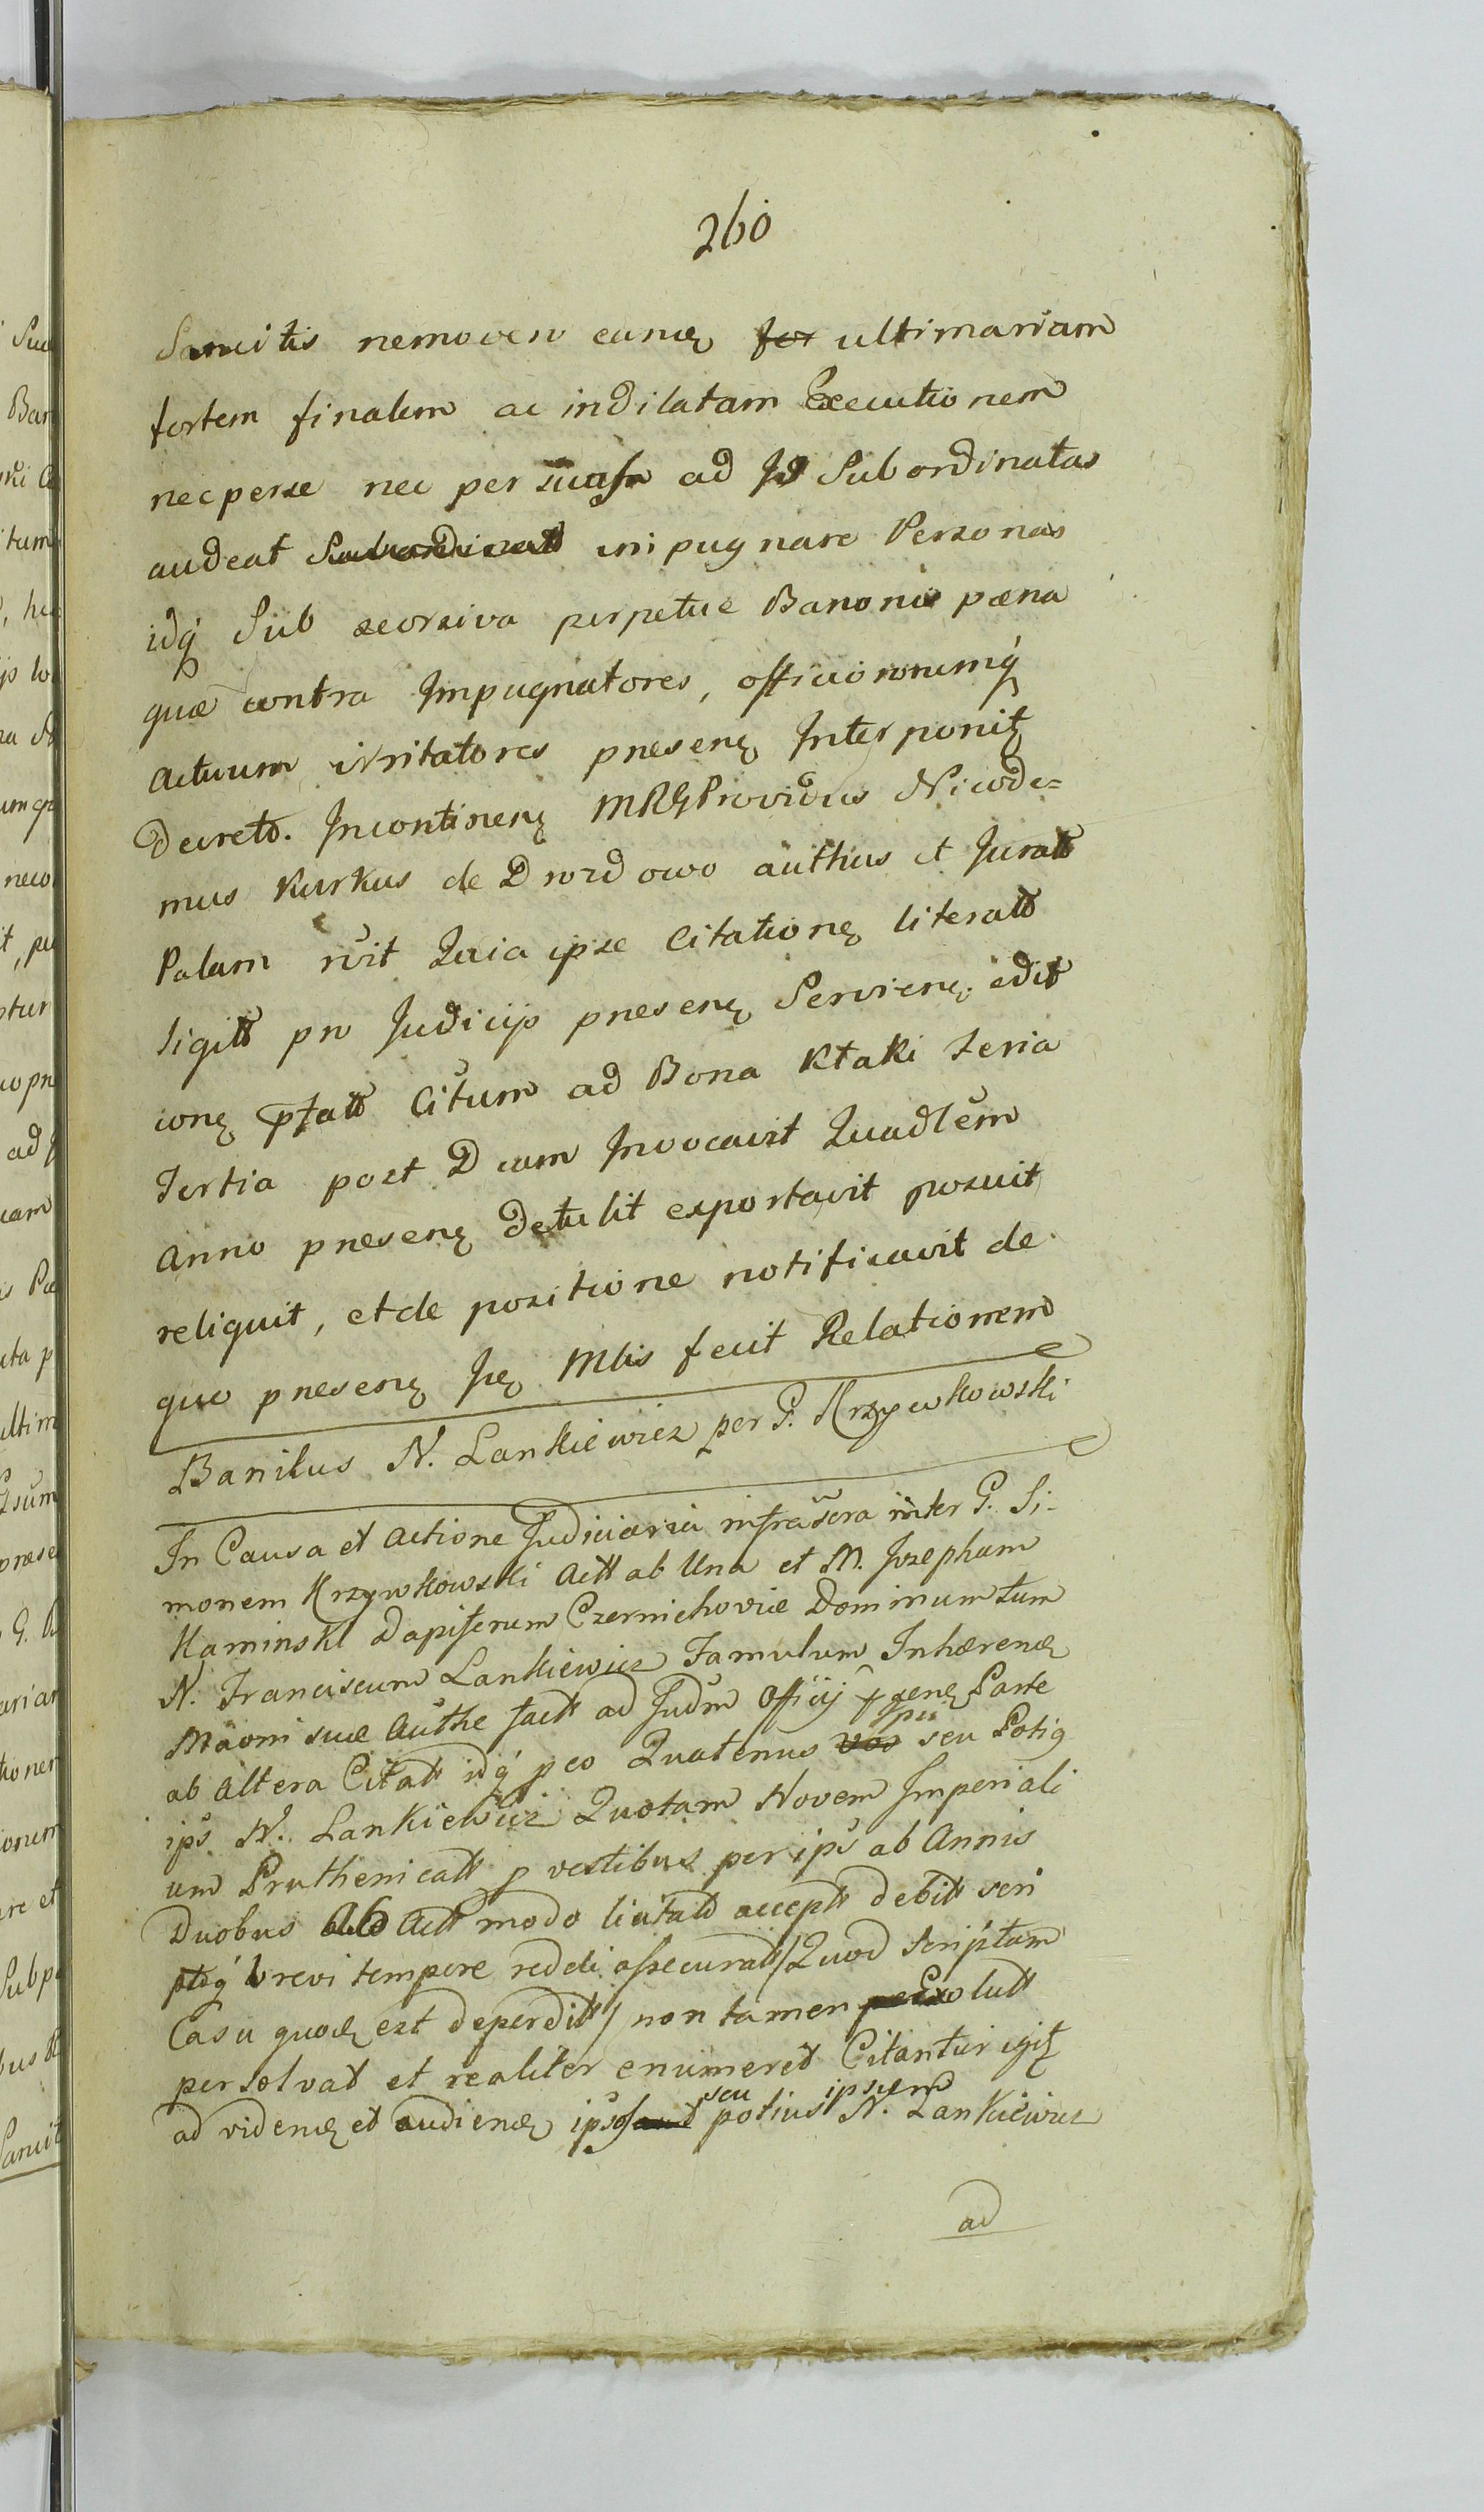 260
Sancitis nemo vero eamq ultimariam
fortem finalem ac indilatam Executionem
nec per se nec per suas ad Id Subordinatas
audeat impugnare Personas
idq́ Sub seorsiva perpetuæ Banonis pæna
quæ contra Impugnatores, officiorumq́
actuum irritatores presenę Interponitɀ
Decreto. Incontinenę MRGProvidus Nicode=
mus Kurkus de Drozdowo authus et Juratt
Palam rvit Quia ipse Citationę literatt
sigitt pro Judicijs presenę Servienę edit
ionę pttatt Citum ad Bona Ktaki feria
Tertia post Dcam Invocavit Quadlem
Anno presenę detulit exportavit posuit
reliquit, et de positione notificavit de
quo presenę Jtę Mlis fecit Relationem
Banitus N. Lankiewicz per G. Krzywkowski
In Causa et actione Judiciaria infrascra inter G. Si-
monem Krzywkowski Actt ab Una et M. Josephum
Kaminski Dapiferum Czernichoviæ Dominum tum
N. Franciscum Lankiewicz Famulum Inhærenę
Maoni suæ Authe factt ad Judm Officij psenę Parte
ab altera Citatt idq́ p eo Quatenus seu Potiq
ips N. Lankiewicz Quotam Novem Imperiali
um Pruthenicatt p vestibus per ips ab Annis
Duobus Ab Actt modo licitatt acceptt debitt scri
ptoq́ brevi tempore reddi assecuratt / Quod scriptum
Casu quodę est deperditt / non tamen Exolutt
persolvat et realiter enumeret Citantur igitɀ
seu ipsum
ad videnę et audienę potius N. Lankiewicz
ad